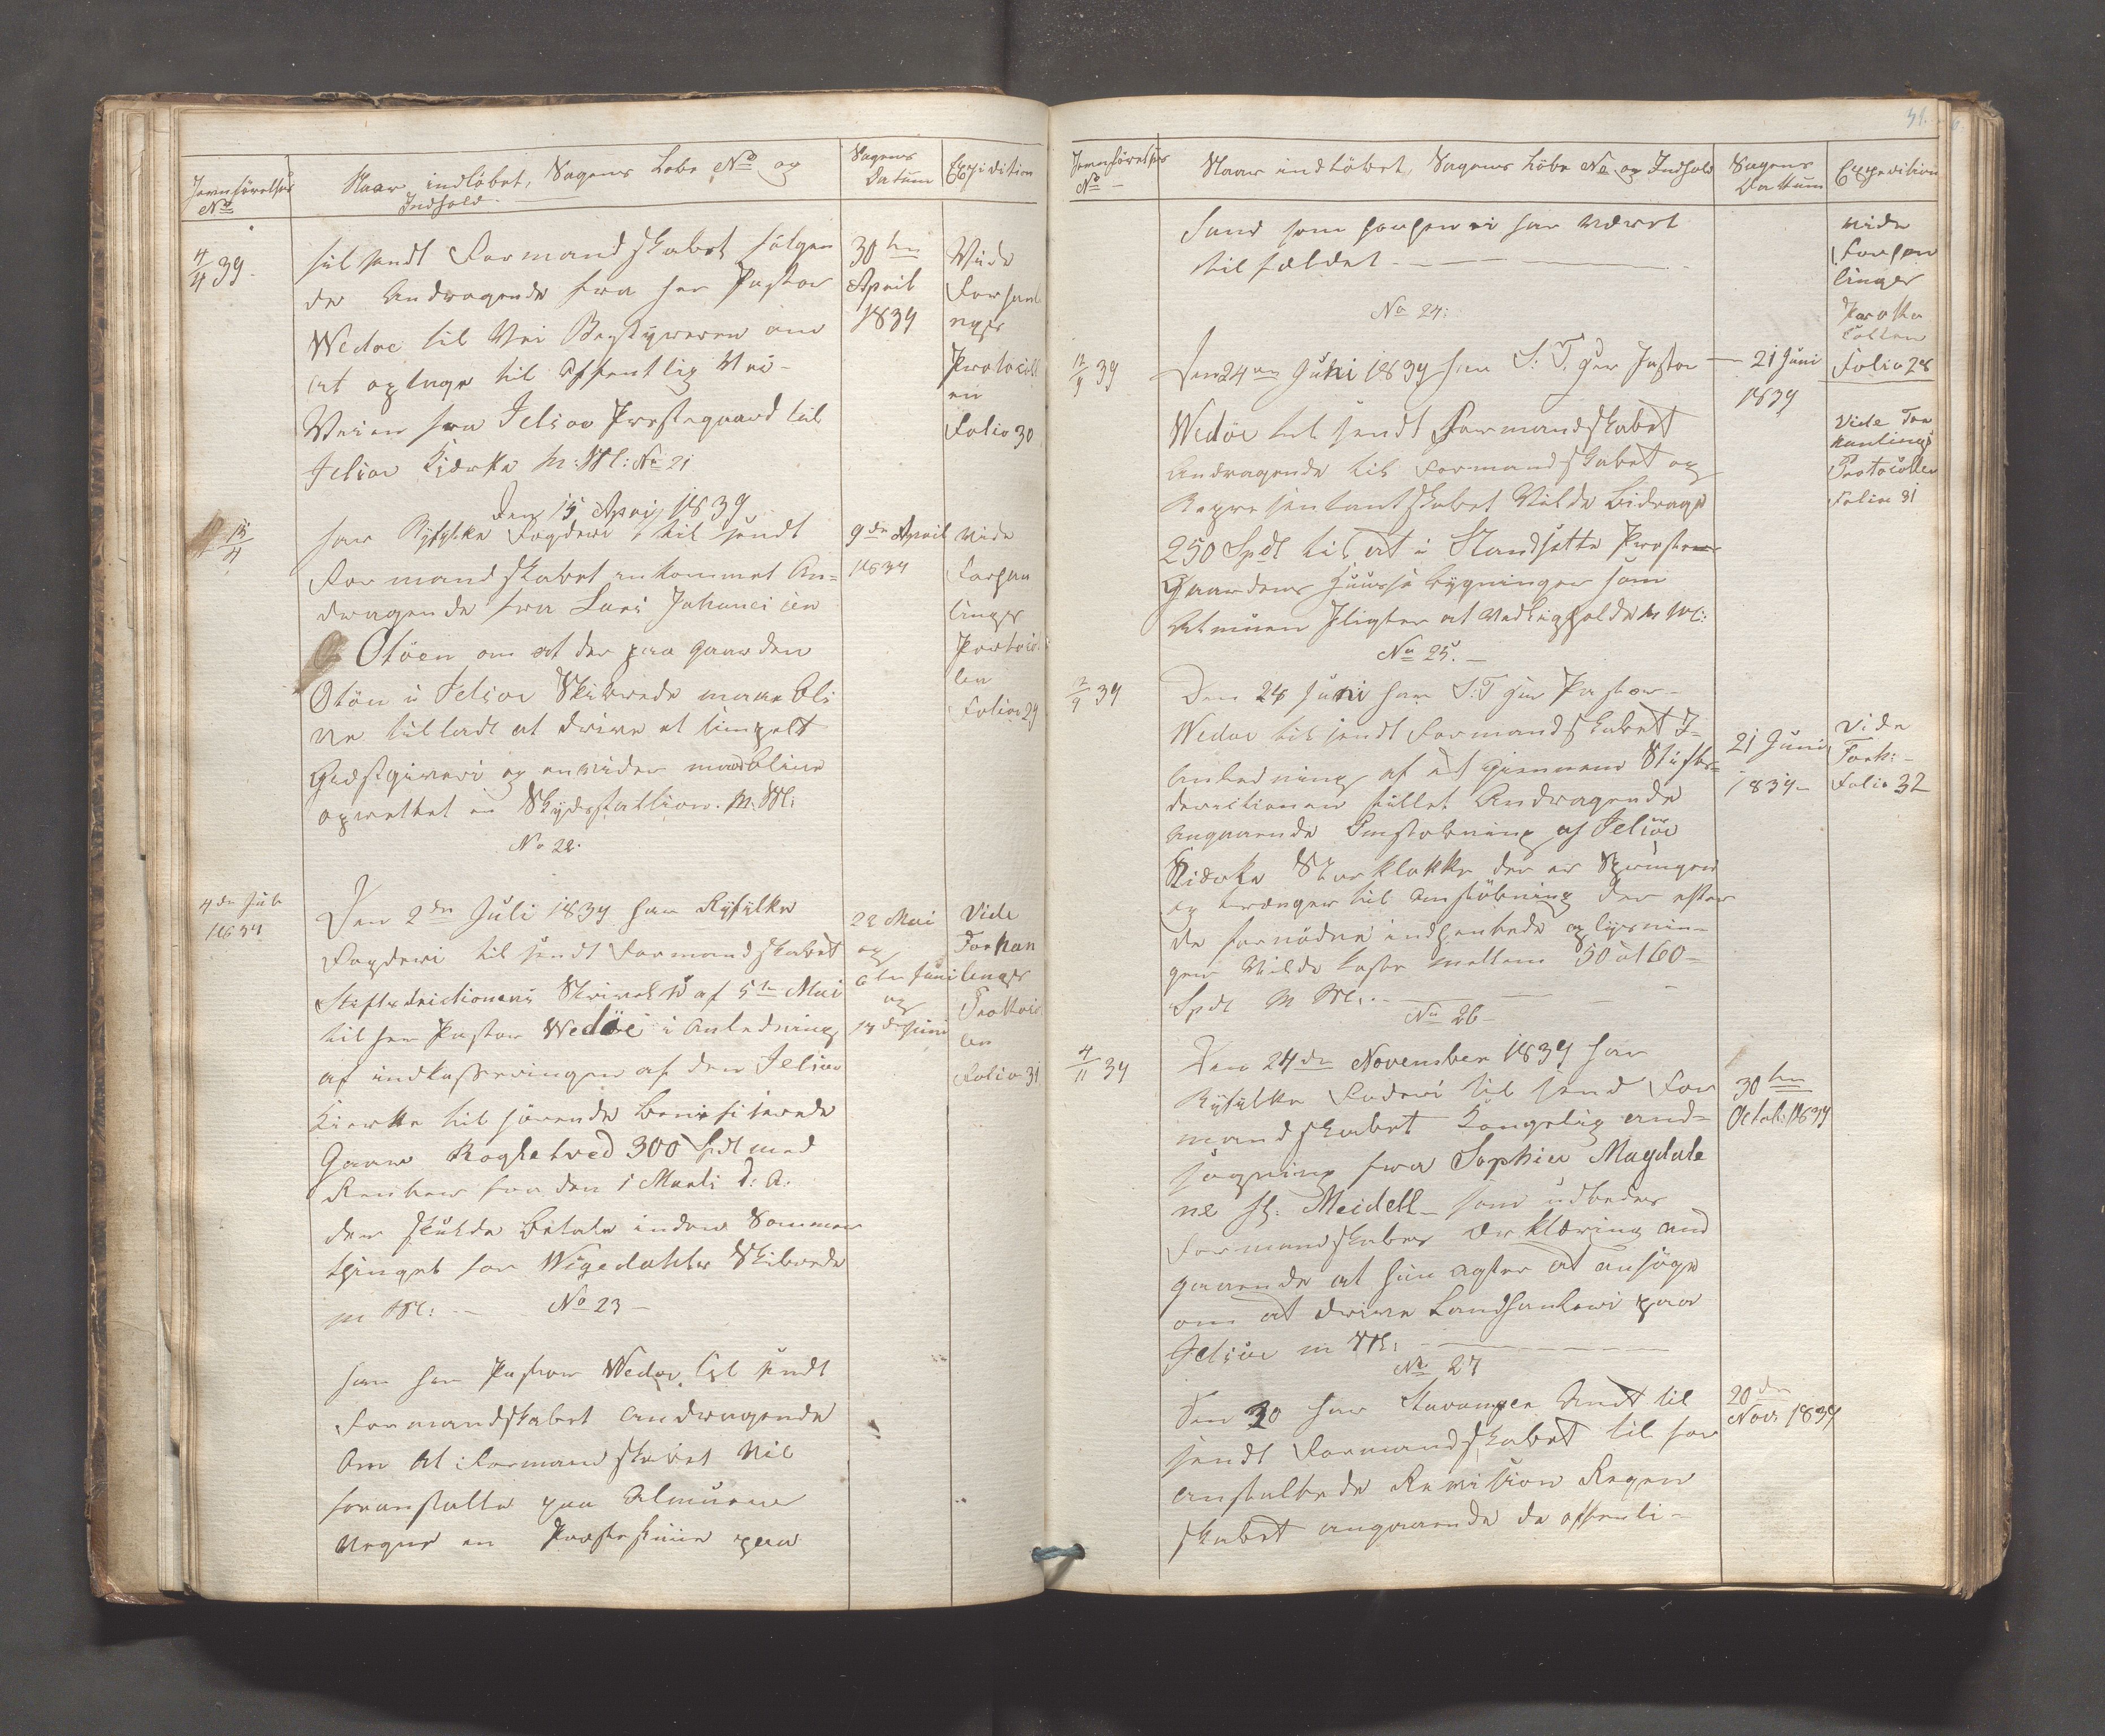 Jevnförelses
No
Naar indlöbet, Sagens Löbe No og
Indhold
Sagens
Datum
Expidition
4/4 39.
tilsendt Formandskabet fölgen
de Andragende fra Her Pastor
Wedøe til Vei Bestÿreren om
at optage til offentlig Vei
Veien fra Jelsøe Prestegaard til
Jelsøe Kierke m: M: No 21
30te
April
1839
Vide
Forhand
nges
Protocoll
en
Folio 30
Den 15 April 1839
15/4
har Rÿfylke Fogderi tilsendt
Formandskabet inkommet An=
dragende fra Lars Johanesen
Otöen om at der paa Gaarden
Otön i Jelsøe Skibrede maae bli
ve tilladt at drive et simpelt
Giestgiveri og envider maae blive
oprettet en Skydsstattion. M. M:
9de April
1839
Vide
Forhan
linges
Protocol
len
Folio 29
No 22.
4de Juli
1839
Den 2den Juli 1839 har Rÿfylke
Fogderi tilsendt Formandskabet
Stiftsdrictionens Skrivelse af 5te Mai
til Her Pastor Wedöe i Anledning
af indkasseringen af den Jelsøe
Kierke tilhörende Benefiserede
Gaard Roglatved 300 Spdl med
Renter fra den 1 Marti d: A:
der skulde Betale inden Sommer
thinget for Wigedahls Skibrede
m M: No 23
22 Mai
og
6te Juni
og
14de Juni
Vide
Forhan
linges
Prottocol
len
Folio 31
har Her Pastor Wedøe tilsendt
Formandskabet Andragende
Om At Formandskabet Vil
foranstalte paa Almuens
Vegne en Prestestue paa
Jevnförelses
No
Naar indlöbet, Sagens Löbe No og Indhold
Sagens
Dattum
Expedition
31.
Sand som forhen ei har været
tilfældet
Vide
Forhan
linges
Protto
collen
Folio 28
No 24:
39
Den 24de Juni 1839 har S: T. Her Pastor
Wedöe tilsendt Formandskabet
Andragende til Formandskabet og
Representantskabet Vilde Bidrage
250 Spdl til at i Standsætte Preste
Gaardens Huuse bygninger som
Almuen Pligter at Vedligeholde m M:
21 Juni
1839
Vide For
hanlings
Protocollen
Folio 31
No 25.
39
Den 24 Juni har S: T Her Pastor
Wedøe tilsendt Formandskabet I
Anledning af et giennem Stifts=
derictionen stillet Andragende
Angaaende Omstöbning af Jelsöe
Kierke Storklokke der er Sprungen
og trænger til Omstöbning der efter
de fornödne indhentede oplysnin=
ger Vilde koste mellem 50 a 60
Spdl M M:
21 Juni
1839
Vide
Forh:
Folio 32
No 26
4/11 39
Den 24de November 1839 har
Rÿfylke Foderi tilsend For
mandskabet Kongelig And=
sögning fra Sophie Magdale
ne Sl: Meidell som udbeder
Formandskabes Erklæring and
gaaende at hun agter at ansöge
om at drive Landhandleri paa
Jelsöe m M:
30te
Octob: 1839
No 27
Den 30 har Stavanger Amt til
sendt Formandskabet til for
anstaltede Revission Regen
skabet angaaende de offentli
20de
Nov: 1839